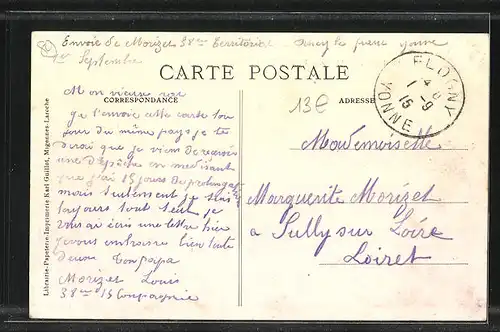 Envoie de Morizet 38me territorial Ancy le franc yonne
1er Septembre
CARTE POSTALE
CORRESPONDANCE
ADRESSE
13€
FLOGNY
YONNE
1 -9
15
Librairie-Papeterie-Imprimerie Karl Guillot, Migennes-Laroche
Mon
je t'envoie cette carte tou
jour du même pays je te
dirai que je viens de recevoir
une dépêche en me disant
que j'ai 15 jours de prolongat
mais seulement je suis
toujours tout seul je
vous ai écris une lettre hier
je vous embrasse bien toute
deux ton papa
Morizet Louis
38me 15 Compagnie
Mademoiselle
Marguerite Morizet
a Sully sur Loire
Loiret